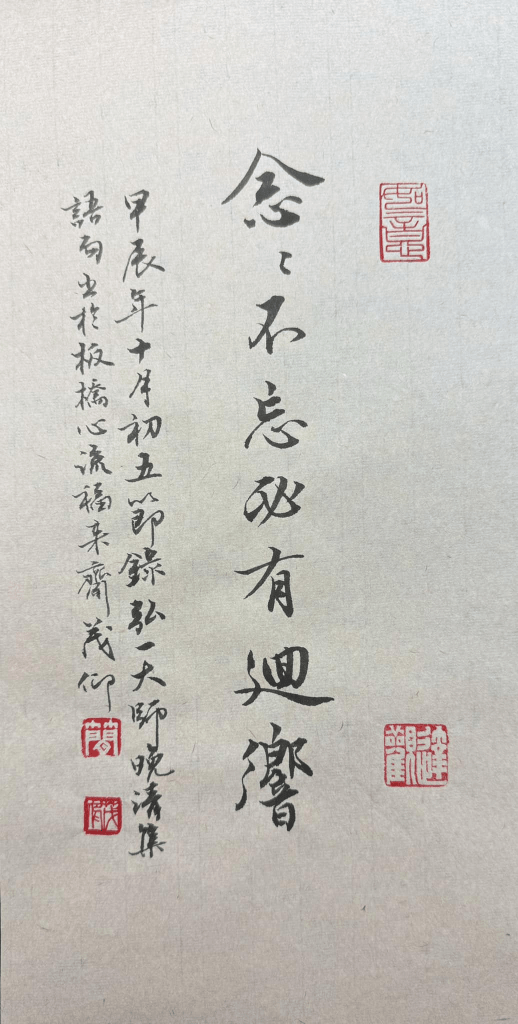 念〻不忘必有迴響
甲辰年十月初五節錄弘一大師晚清集
語句书於板橋心流福来齋茂仰
簡
茂仰